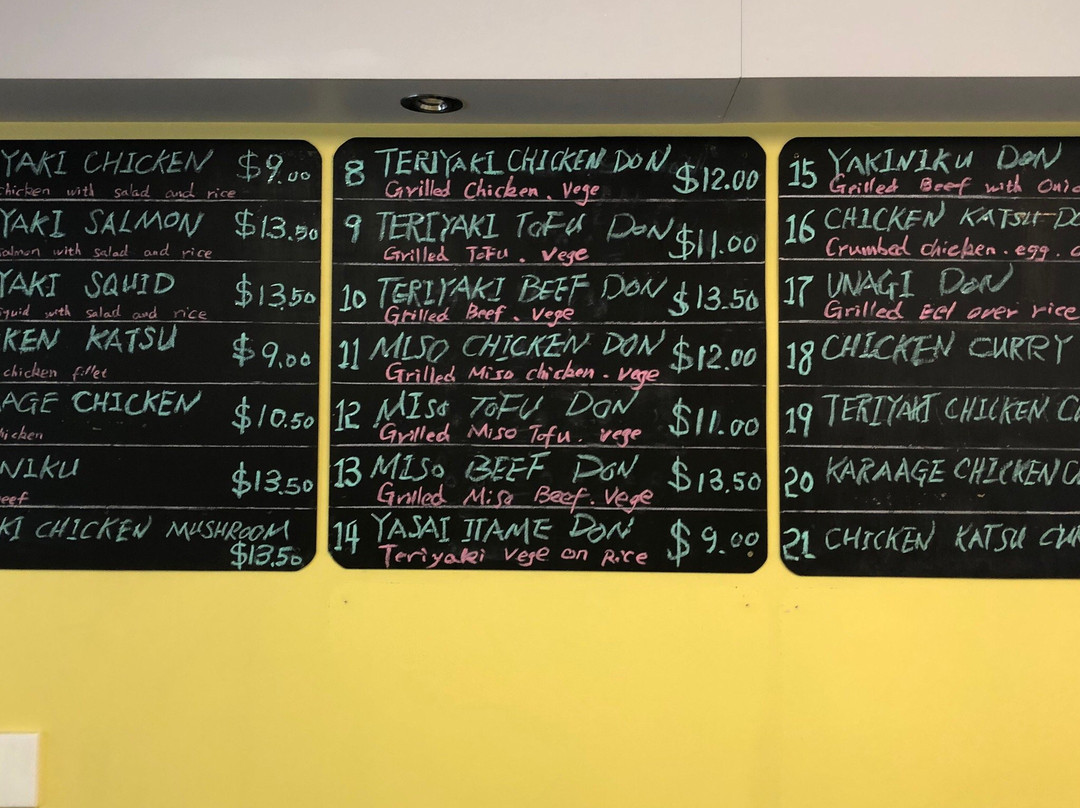 YAKI CHICKEN $9.00
chicken with salad and rice
YAKI SALMON $13.50
salmon with salad and rice
YAKI SQUID $13.50
squid with salad and rice
KEN KATSU $9.00
chicken fillet
AGE CHICKEN $10.50
chicken
NIKU $13.50
eef
KI CHICKEN MUSHROOM
$13.50
8 TERIYAKI CHICKEN DON $12.00
Grilled Chicken. Vege
9 TERIYAKI TOFU DON $11.00
Grilled Tofu. Vege
10 TERIYAKI BEEF DON $13.50
Grilled Beef. Vege
11 MISO CHICKEN DON $12.00
Grilled Miso chicken. vege
12 MISO TOFU DON $11.00
Grilled Miso Tofu. vege
13 MISO BEEF DON $13.50
Grilled Miso Beef. Vege
14 YASAI ITAME DON $9.00
Teriyaki vege on Rice
15 YAKINIKU DON
Grilled Beef with Onio
16 CHICKEN KATSU DO
Crumbed chicken. egg.
17 UNAGI DON
Grilled Eel over rice
18 CHICKEN CURRY
19 TERIYAKI CHICKEN C
20 KARAAGE CHICKEN C
21 CHICKEN KATSU CUR